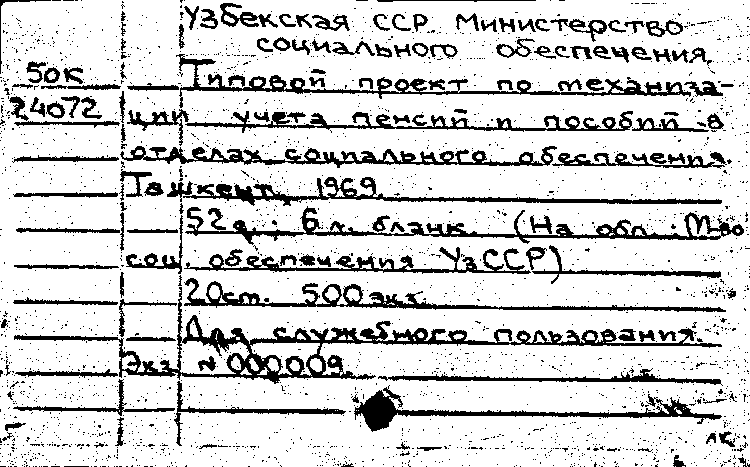 Узбекская ССР Министерство
социального обеспечения.
50К Типовой проект по механиза-
24072 ции учета пенсий и пособий в
отделах социального обеспечения.
Ташкент, 1969.
52 с.; 6 л. бланк. (На обл.: М-во
соц. обеспечения УзССР)
20 см. 500 экз.
Для служебного пользования.
Экз. № 000009.